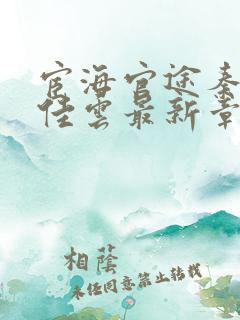 宦海官途秦
佳雲最新章
相蔭
未任同意禁止转载